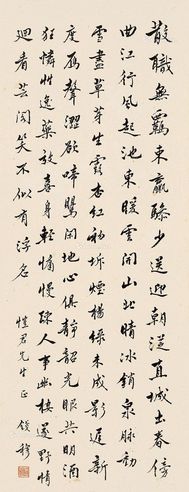 散職無羈束羸驂少送迎朝從直城出春傍
曲江行風起池東暖雲開山北晴冰銷泉脈動
雪盡草芽生露杏紅初坼煙楊綠未成影遲新
度雁聲澀欲啼鶯閒地心俱靜韶光眼共明酒
狂憐性逸藥效喜身輕慵慢疎人事幽棲逐野情
迴看芸閣笑不似有浮名
愷君先生正 錢穆